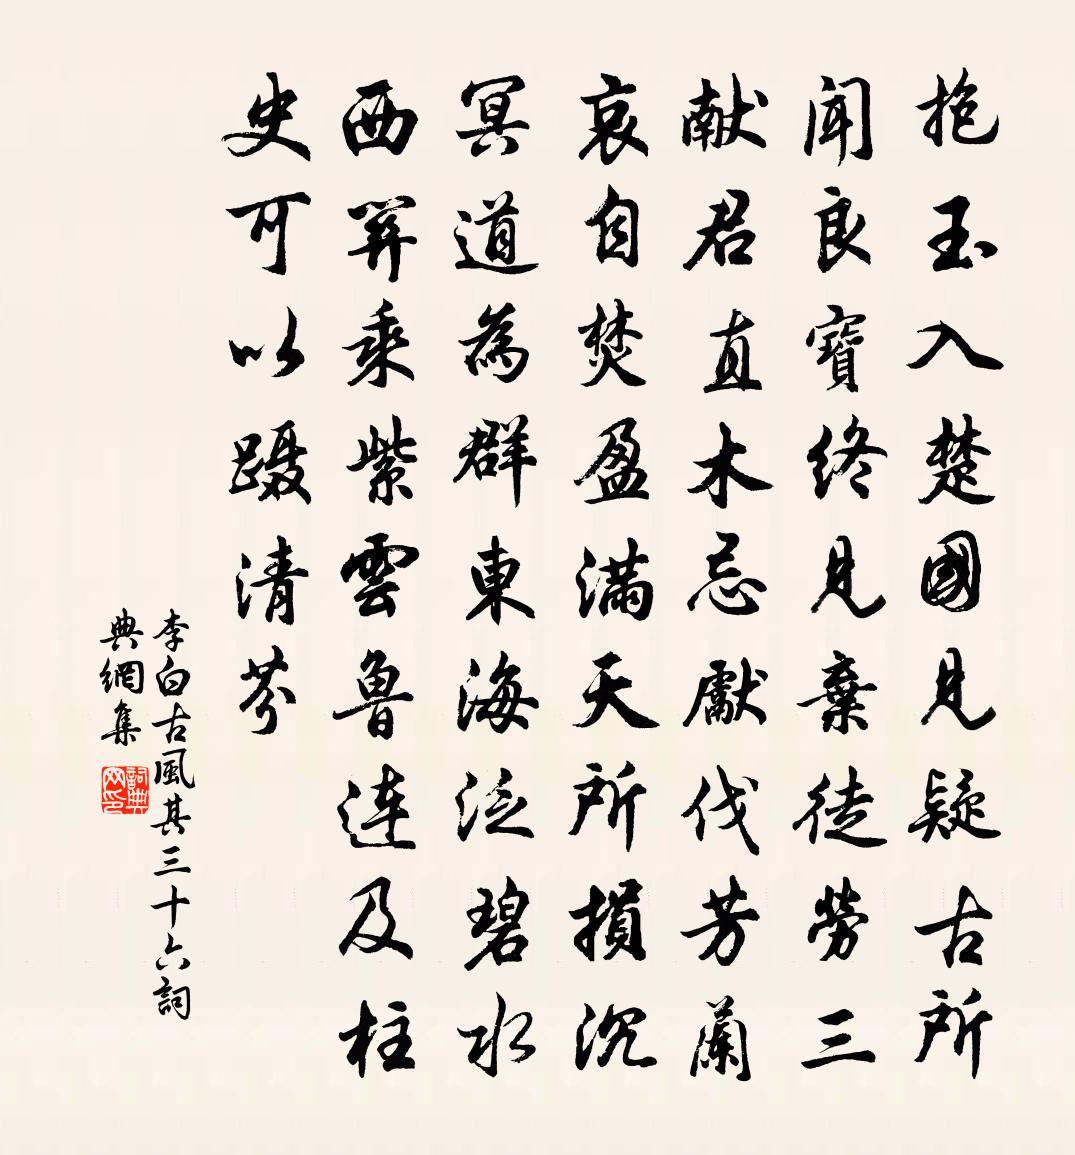 抱玉入楚國見疑古所
聞良寶終見棄徒勞三
献君直木忌獻伐芳蘭
哀自焚盈滿天所損沉
冥道為群東海泛碧水
西關乘紫雲魯連及柱
史可以蹑清芬
李白古風其三十六詞
典網集
詞典
网印